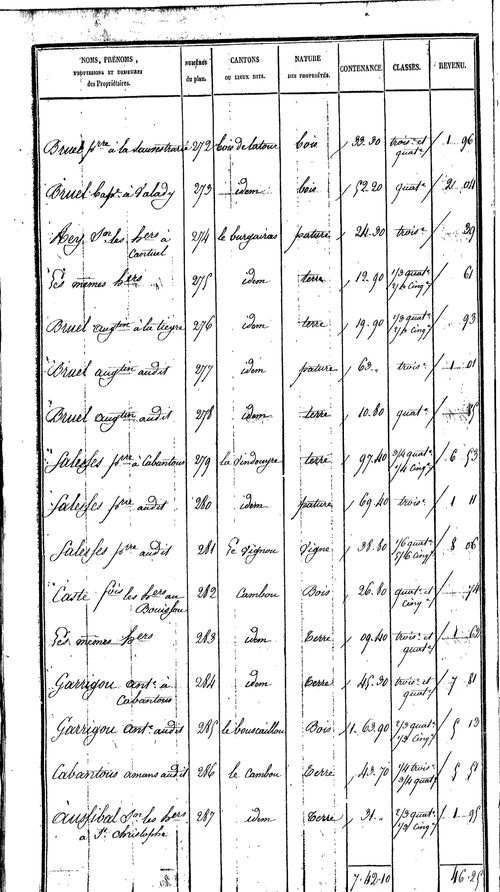 NOMS, PRÉNOMS, PROFESSIONS ET DEMEURES des Propriétaires. NUMÉROS du plan. CANTONS OU LIEUX DITS. NATURE DES PROPRIÉTÉS. CONTENANCE. CLASSES. REVENU.
Bruel pʳʳᵉ à la 272 bois de latour bois 33.30 troisᵉ et quatᵉ 1 96
Bruel à Valady 273 idem bois 52.20 quatᵉ 2 04
Rey les hᵉʳˢ à Cantuel 274 le burgairas pature 24.30 troisᵉ 39
Les mêmes hᵉʳˢ 275 idem terre 12.90 1/3 quatᵉ cinqᵉ 61
Bruel augᵗⁱⁿ à la 276 idem terre 19.90 1/3 quatᵉ cinqᵉ 93
Bruel augᵗⁱⁿ audit 277 idem pature 63 " troisᵉ 1 01
Bruel augᵗⁱⁿ audit 278 idem terre 10.80 quatᵉ
Salesses pʳʳᵉ à Cabantous 279 la terre 97.40 3/4 quatᵉ 1/4 cinqᵉ 6 53
Salesses pʳʳᵉ audit 280 idem pature 69.40 troisᵉ 1 11
Salesses pʳʳᵉ audit 281 Le Vignou Vigne 38.80 1/6 quatᵉ 5/6 cinqᵉ 8 06
Caste fᵒⁱˢ les hᵉʳˢ au Bouissou 282 Cambou Bois 26.80 quatᵉ et cinqᵉ 74
Les mêmes hᵉʳˢ 283 idem Terre 09.40 troisᵉ et quatᵉ 1 62
Garrigou antᵉ à Cabantous 284 idem Terre 45.30 troisᵉ et quatᵉ 7 81
Garrigou antᵉ audit 285 le bouscaillou Bois 1.63.90 2/3 quatᵉ 1/3 cinqᵉ 5 13
Cabantous amans audit 286 le Cambou Terre 43.70 1/4 troisᵉ 3/4 quatᵉ 5 51
les hᵉʳˢ à Sᵗ Christophe 287 idem Terre 31 " 2/3 quatᵉ 1/3 cinqᵉ 1 95
7.42.10 46.25